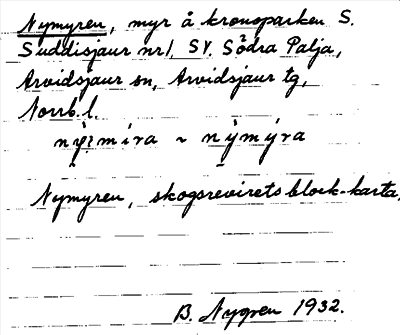 Nymyren, myr å kronoparken S.
Suddisjaur nr1, SV. Södra Palja,
Arvidsjaur sn, Arvidsjaur tg,
Norrb. l.
~ nỳmýra
Nymyren, skogsrevirets block-karta.
B. Nygren 1932.